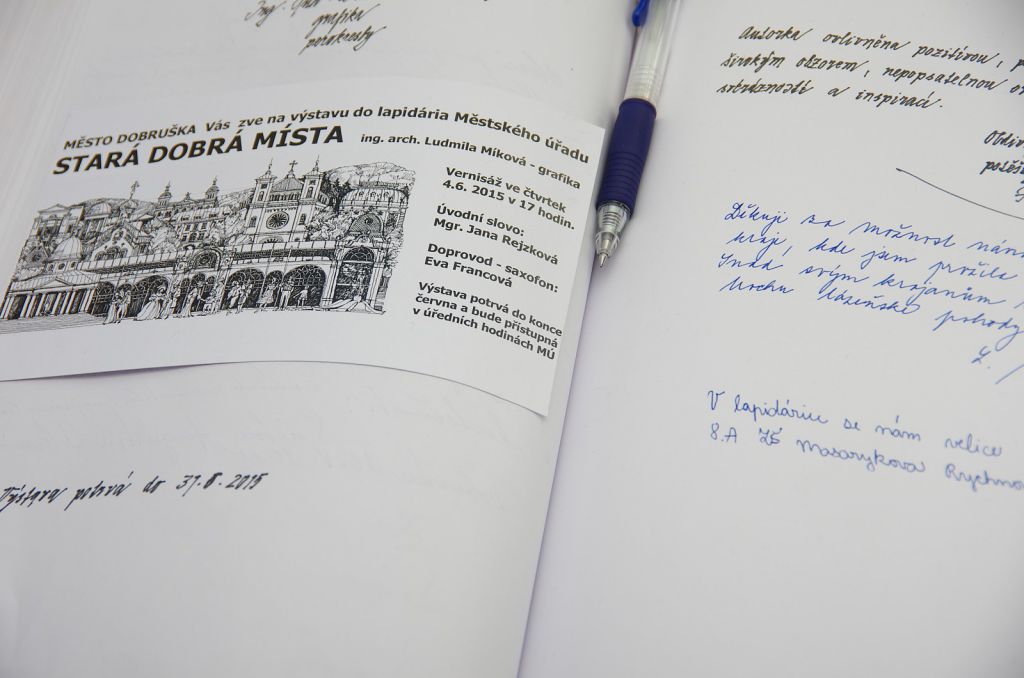 Ing.
grafika
perokresby
MĚSTO DOBRUŠKA Vás zve na výstavu do lapidária Městského úřadu
STARÁ DOBRÁ MÍSTA ing. arch. Ludmila Míková - grafika
Vernisáž ve čtvrtek
4.6. 2015 v 17 hodin.
Úvodní slovo:
Mgr. Jana Rejzková
Doprovod - saxofon:
Eva Francová
Výstava potrvá do konce
června a bude přístupná
v úředních hodinách MÚ
Výstava potrvá do 31.8.2015
Autorka ovlivněna pozitivou, p
širokým obzorem, nepopsatelnou
srdečností a inspirací.
Obdiv
potěš
Děkuji za možnost
kraji, kde jsem prožila
Snad svým krajanům
trochu lázeňské pohody
L.
V lapidáriu se nám velice
8.A ZŠ Masarykova Rychno